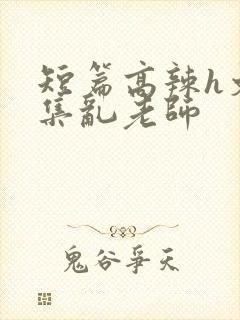 短篇高辣h文
集亂老師
鬼谷爭天